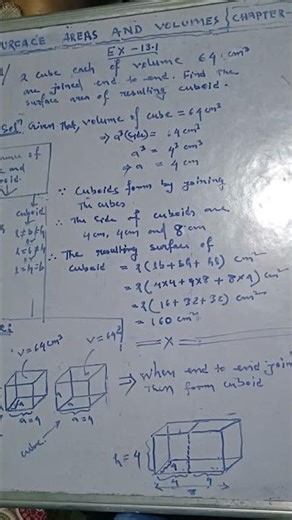 SURFACE AREAS AND VOLUMES {CHAPTER-
EX-13.1
2 cube each of volume 64 cm³
are joined end to end. Find the
surface area of resulting cuboid.
Solⁿ Given that, volume of cube = 64 cm³
⇒ a³ (side) = 64 cm³
a³ = 4³ cm³
⇒ a = 4 cm
∵ Cuboids form by joining
the cubes
∵ The side of cuboids are
4cm, 4cm and 8cm
∴ The resulting surface of
cuboid = 2(lb + bh + hl) cm²
= 2(4×4 + 4×8 + 8×4) cm²
= 2(16 + 32 + 32) cm²
= 160 cm²
— x —
of
and
cuboid
l≠b≠h
l=b≠h
v=64cm³
v=64
a=4
a=4
cube
⇒ When end to end join
Then form cuboid
h=4
4
4
4